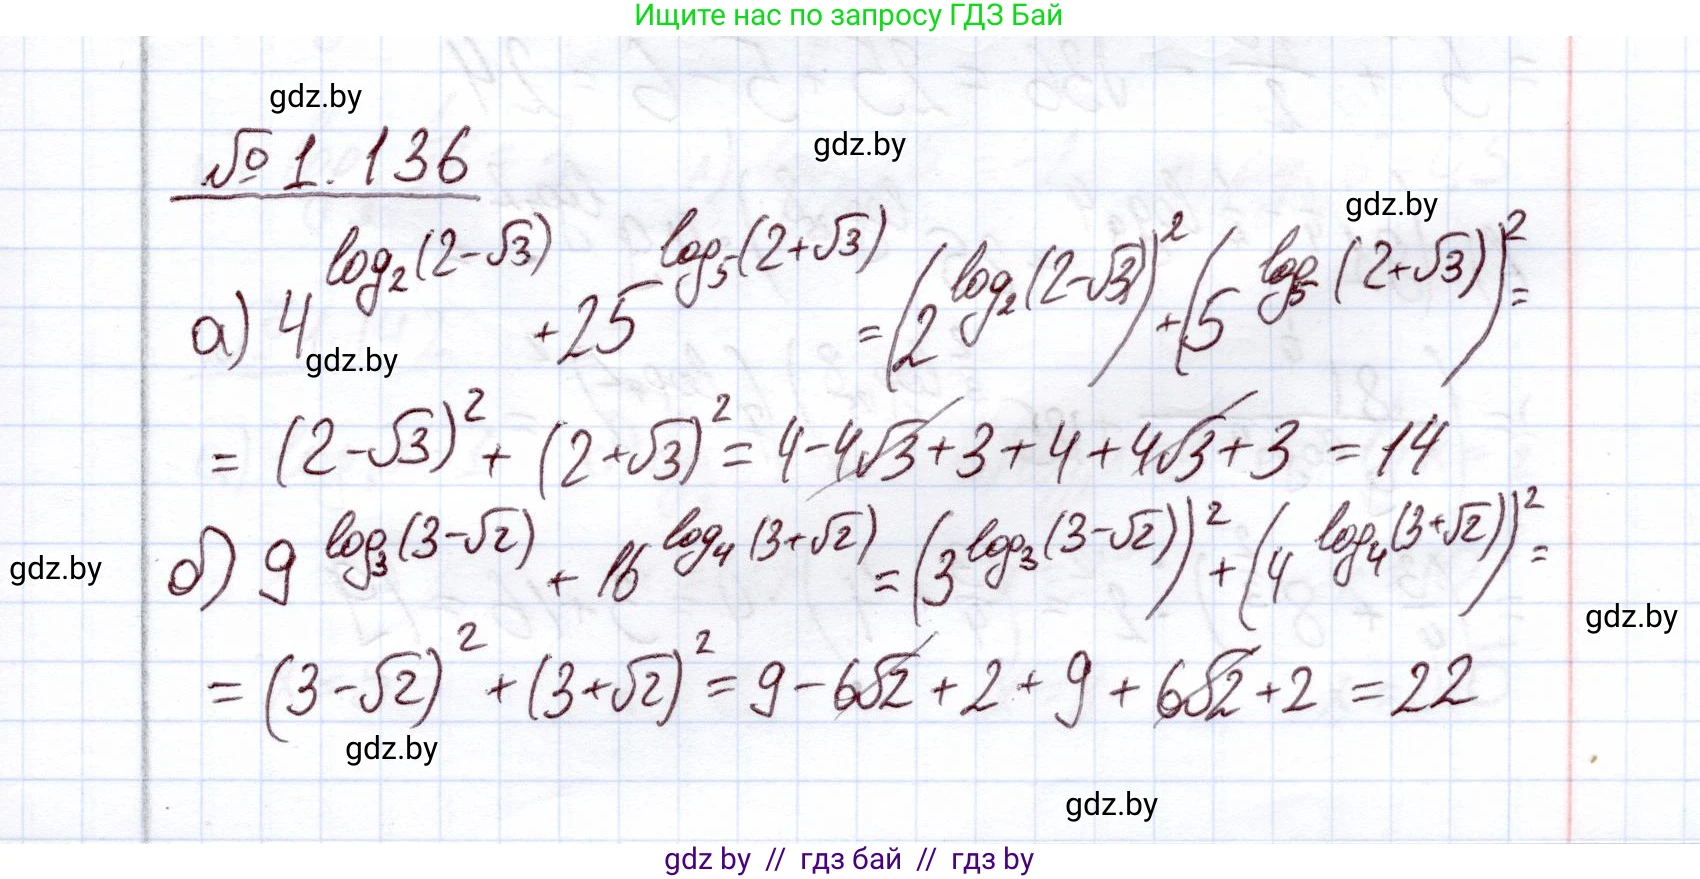 Ищите нас по запросу ГДЗ Бай
gdz.by
gdz.by
№ 1.136
gdz.by
а) 4^{log_2(2-√3)} + 25^{log_5(2+√3)} = (2^{log_2(2-√3)})^2 + (5^{log_5(2+√3)})^2 =
gdz.by
= (2-√3)^2 + (2+√3)^2 = 4-4√3+3+4+4√3+3 = 14
б) 9^{log_3(3-√2)} + 16^{log_4(3+√2)} = (3^{log_3(3-√2)})^2 + (4^{log_4(3+√2)})^2 =
gdz.by
gdz.by
= (3-√2)^2 + (3+√2)^2 = 9-6√2+2+9+6√2+2 = 22
gdz.by
gdz.by
gdz by // гдз бай // гдз by